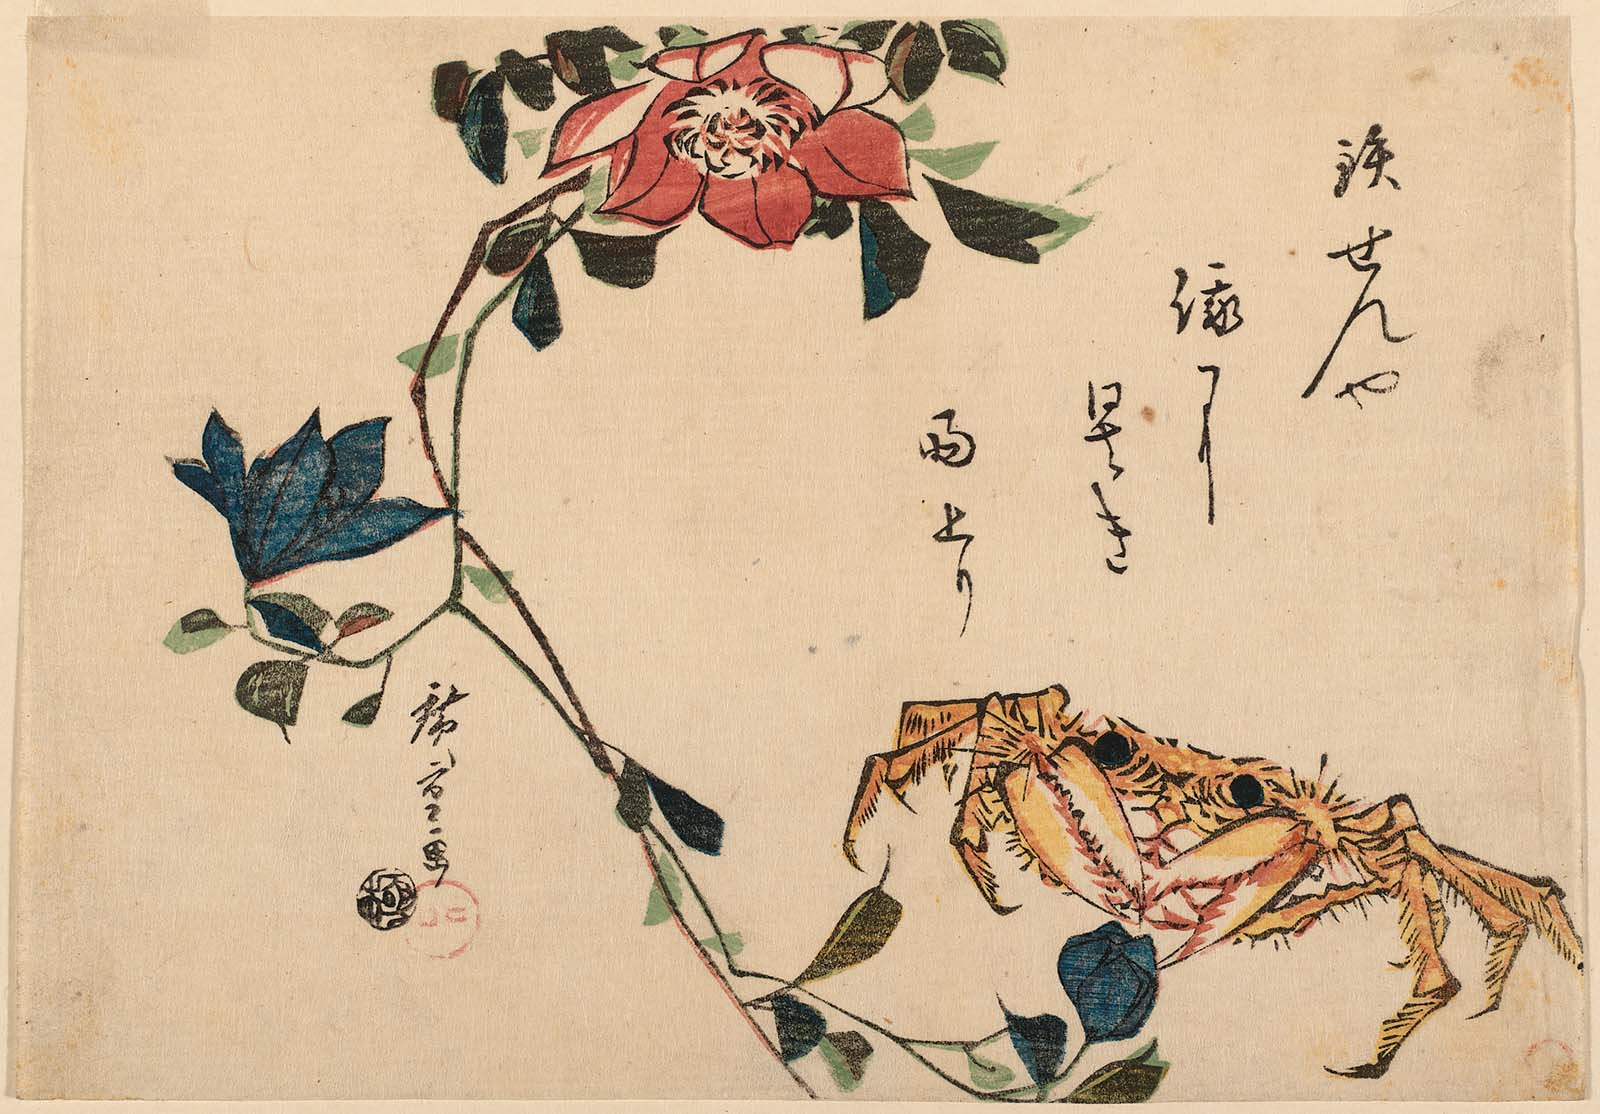 鉄せんや
縁より
早き
雨上り
廣重画